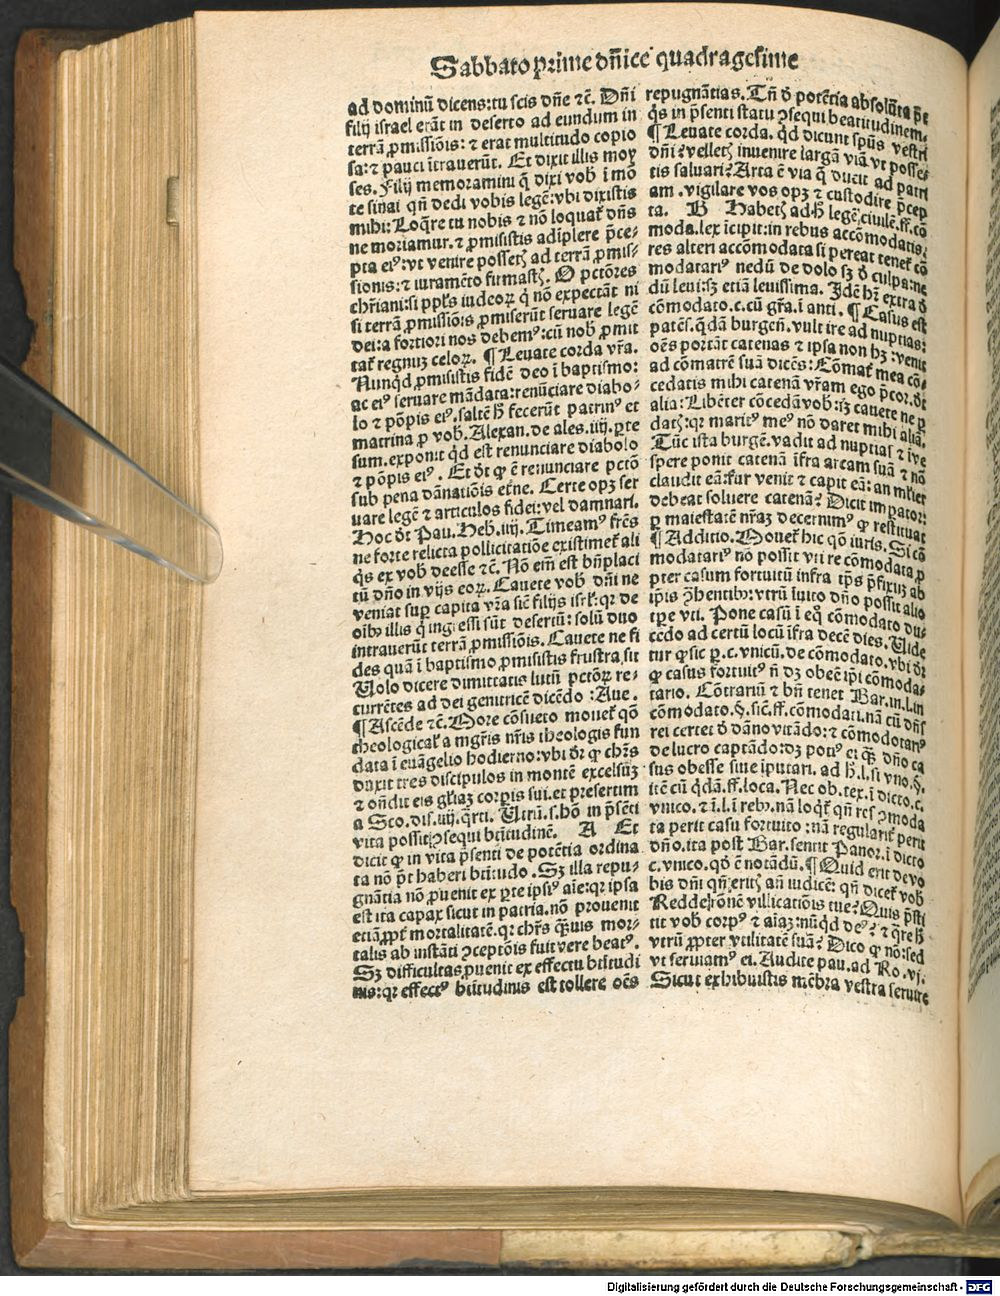 Sabbato prime dn̄ice quadragesime
ad dominū dicens: tu scis dn̄e ⁊c̄. Dn̄i
filij israel erāt in deserto ad eundum in
terrā ꝓmissiōis: ⁊ erat multitudo copio
sa: ⁊ pauci ītrauerūt. Et dixit illis moy
ses. Filij memoramini q̄ dixi vob̄ ī mō
te sinai qn̄ dedi vobis legē: vbi dixistis
mihi: Loq̄re tu nobis ⁊ nō loquat᷑ dn̄s
ne moriamur. ⁊ ꝓmisistis adīplere p̄ce⸗
pta eiꝰ: vt venire possetꝭ ad terrā ꝓmis⸗
sionis: ⁊ iuramēto firmastꝭ. O pctōres
chr̄iani: si ppl̄s iudeoꝝ q̇ nō expectāt ni
si terrā ꝓmissiōis ꝓmiserūt seruare legē
dei: a fortiori nos debemꝰ: cū nob̄ ꝓmit
tat᷑ regnuꝫ celoꝝ. ¶ Leuate corda vr̄a.
Nunqͥd ꝓmisistis fidē deo ī baptismo:
ac eiꝰ seruare mādata: renūciare diabo⸗
lo ⁊ pōpis eiꝰ. saltē ħ fecerūt patrinꝰ et
matrina ꝓ vob̄. Alexan. de ales. iiij. ꝑte
sum. exponit qͥd est renunciare diabolo
⁊ pōpis eiꝰ. Et dt̄ ꝙ ē renunciare pctō
sub pena dānatiōis etn̄e. Certe opꝫ ser
uare legē ⁊ articulos fidei: vel damnari.
Hoc dt̄ Pau. Heb. iiij. Timeamꝰ fr̄es
ne forte relicta pollicitatiōe existimet᷑ ali
q̇s ex vob̄ deesse ⁊c̄. Nō em̄ est bn̄placi
tū dn̄o in vijs eoꝝ. Cauete vob̄ dn̄i ne
veniat suꝑ capita vr̄a sic̄ filijs isrl̄: qꝛ de
oībꝰ illis q̇ ingressi sūt desertū: solū duo
intrauerūt terrā ꝓmissiōis. Cauete ne fi
des quā ī baptismo ꝓmisistis frustra sit
Volo dicere dimittatis lutū pctōꝝ re⸗
currētes ad dei genitricē dicēdo: Aue.
¶ Ascēde ⁊c̄. More cōsueto mouet᷑ qō
theological᷑ a mgr̄is nr̄is theologis fun
data ī euāgelio hodierno: vbi dr̄ ꝙ chr̄s
duxit tres discipulos in montē excelsuꝫ
⁊ on̄dit eis gl̄iaꝫ corꝑis sui. et presertim
a Sco. dis. iiij. q̄rti. Vtrū. s. hō in p̄sēti
vita possit ꝯsequi btītudinē. A Et
dicit ꝙ in vita p̄senti de potētia ordina
ta nō p̄t haberi btītudo. Sꝫ illa repu⸗
gnātia nō ꝓuenit ex ꝑte ipsiꝰ aīe: qꝛ ipsa
est ita capax sicut in patria. nō prouenit
etiā ꝓpt᷑ mortalitatē. qꝛ chr̄s q̄ꝫuis mor⸗
talis ab instāti ꝯceptōis fuit vere beatꝰ.
Sꝫ difficultas ꝓuenit ex effectu btītudi
nis: qꝛ effectꝰ btītudinis est tollere oēs
repugnātias. Tn̄ d̄ potētia absolūta p̄t
q̇s in p̄senti statu ꝯsequi beatitudinem.
¶ Leuate corda. qͥd dicunt spūs vestri
dn̄i? velletꝭ inuenire largā viā vt posse⸗
tis saluari? Arta ē via q̄ ducit ad patri
am. vigilare vos opꝫ ⁊ custodire p̄cep
ta. B Habetꝭ ad ħ legē ciuilē. ff. cō
moda. lex īcipit: in rebus accōmodatis:
res alteri accōmodata si pereat tenet᷑ cō
modatariꝰ nedū de dolo sꝫ d̄ culpa: ne
dū leui: sꝫ etiā leuissima. Idē hr̄ extra d̄
cōmodato. c. cū gr̄a. ī anti. ¶ Casus est
patēs. q̇dā burgen̄. vult ire ad nuptias:
oēs portāt catenas ⁊ ipsa non hꝫ: venit
ad cōmatrē suā dicēs: Cōmat᷑ mea cō⸗
cedatis mihi catenā vr̄am ego p̄cor. dt̄
alia: Libēter cōcedā vob̄: sꝫ cauete ne ꝑ
datꝭ: qꝛ maritꝰ meꝰ nō daret mihi aliā.
Tūc ista burgē. vadit ad nuptias ⁊ ī ve
spere ponit catenā īfra arcam suā ⁊ nō
claudit eā: fur venit ⁊ capit eā: an ml̓ier
debeat soluere catenā? Dicit imꝑator:
ꝑ maiestatē nr̄aꝫ decernimꝰ ꝙ restituat
¶ Additio. Mouet᷑ hic qō iuris. Si cō
modatariꝰ nō possit vti re cōmodata ꝓ
pter casum fortuitū infra tp̄s p̄fixuꝫ ab
ip̄is ꝯhentibꝰ: vtrū īuito dn̄o possit alio
tꝑe vti. Pone casū ī eq̊ cōmodato du⸗
cēdo ad certū locū īfra decē dies. Vide
tur ꝙ sic ꝑ. c. vnicū. de cōmodato. vbi dr̄
ꝙ casus fortuitꝰ n̄ dꝫ obeē ip̄i cōmoda⸗
tario. Cōtrariū ⁊ bn̄ tenet Bar. in. l. in
cōmodato. §. sic̄. ff. cōmodati. nā cū dn̄s
rei certet d̄ dāno vitādo: ⁊ cōmodotariꝰ
de lucro captādo: dꝫ potiꝰ ei q̄ꝫ dn̄o ca
sus obesse siue īputari. ad ħ. l. si vno. §.
itē cū q̇dā. ff. loca. Nec ob. tex. ī dicto. c.
vnico. ⁊ ī. l. ī rebꝰ. nā loq̇t᷑ qn̄ res ꝯmoda
ta perit casu fortuito: nā regularit᷑ perit
dn̄o. ita post Bar. sentit Panor. ī dicto
c. vnico. qd̓ ē notādū. ¶ Quid erit de vo
bis dn̄i qn̄ eritꝭ an̄ iudicē: qn̄ dicet᷑ vob̄
Redde rōnē villicatiōis tue? Quis p̄sti
tit vob̄ corpꝰ ⁊ aīaꝫ: nūqͥd deꝰ? ⁊ q̄re ħ
vtrū ꝓpter vtilitatē suā? Dico ꝙ nō: sed
vt seruiamꝰ ei. Audite pau. ad Ro. vj.
Sicut exhibuistis mēbra vestra seruire
Digitalisierung gefördert durch die Deutsche Forschungsgemeinschaft - DFG